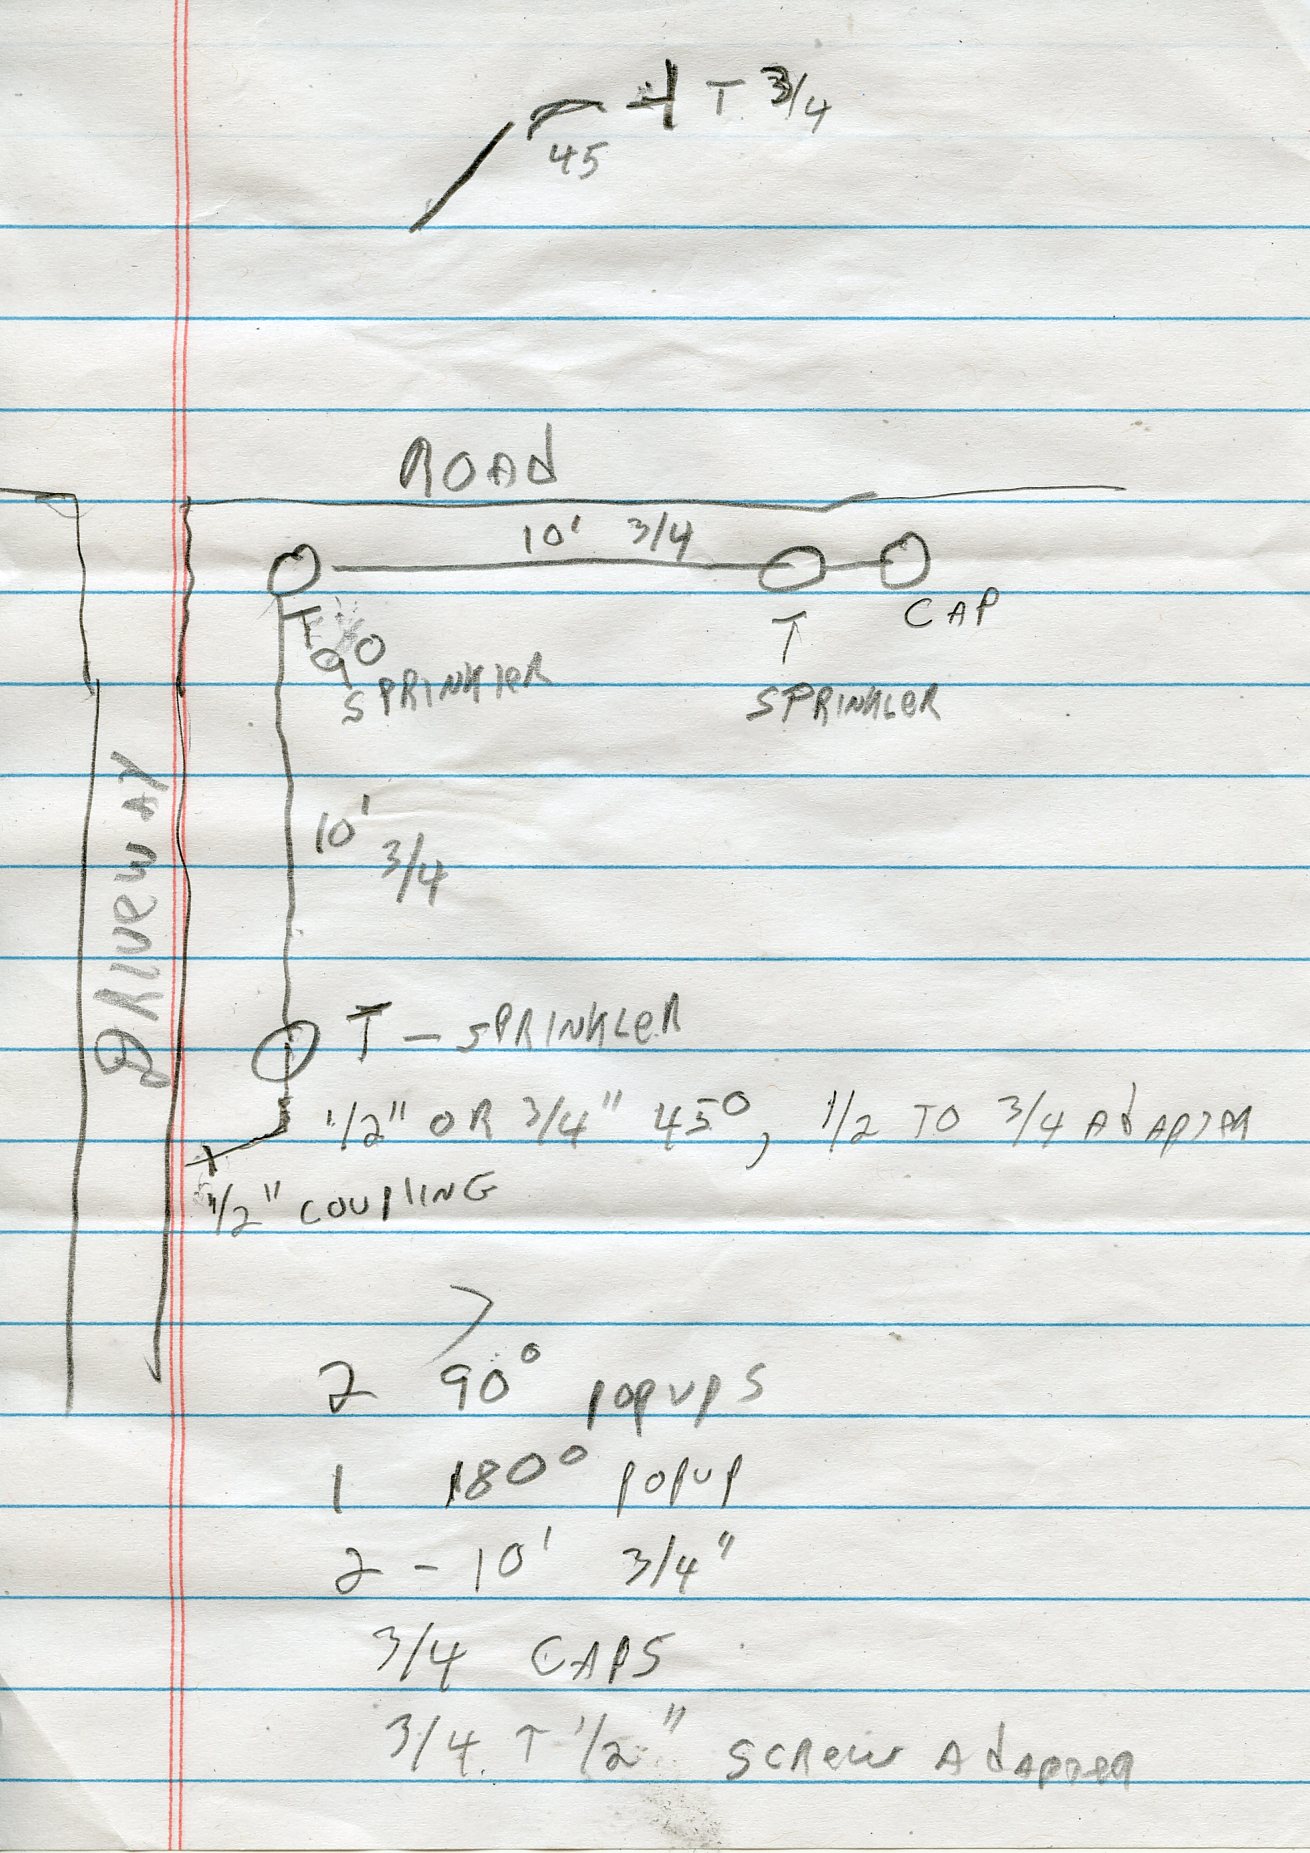 T 3/4
45
ROAD
10' 3/4
CAP
T
90
SPRINKleR
T
SPRINKLeR
DRIVeWAY
10'
3/4
T - SPRINKLeR
1/2" OR 3/4" 45°, 1/2 TO 3/4 AdAPTeR
1/2" COUPlING
2 90° POPUPS
1 180° POPUP
2 - 10' 3/4"
3/4 CAPS
3/4. T 1/2" SCReW AdAPTeR